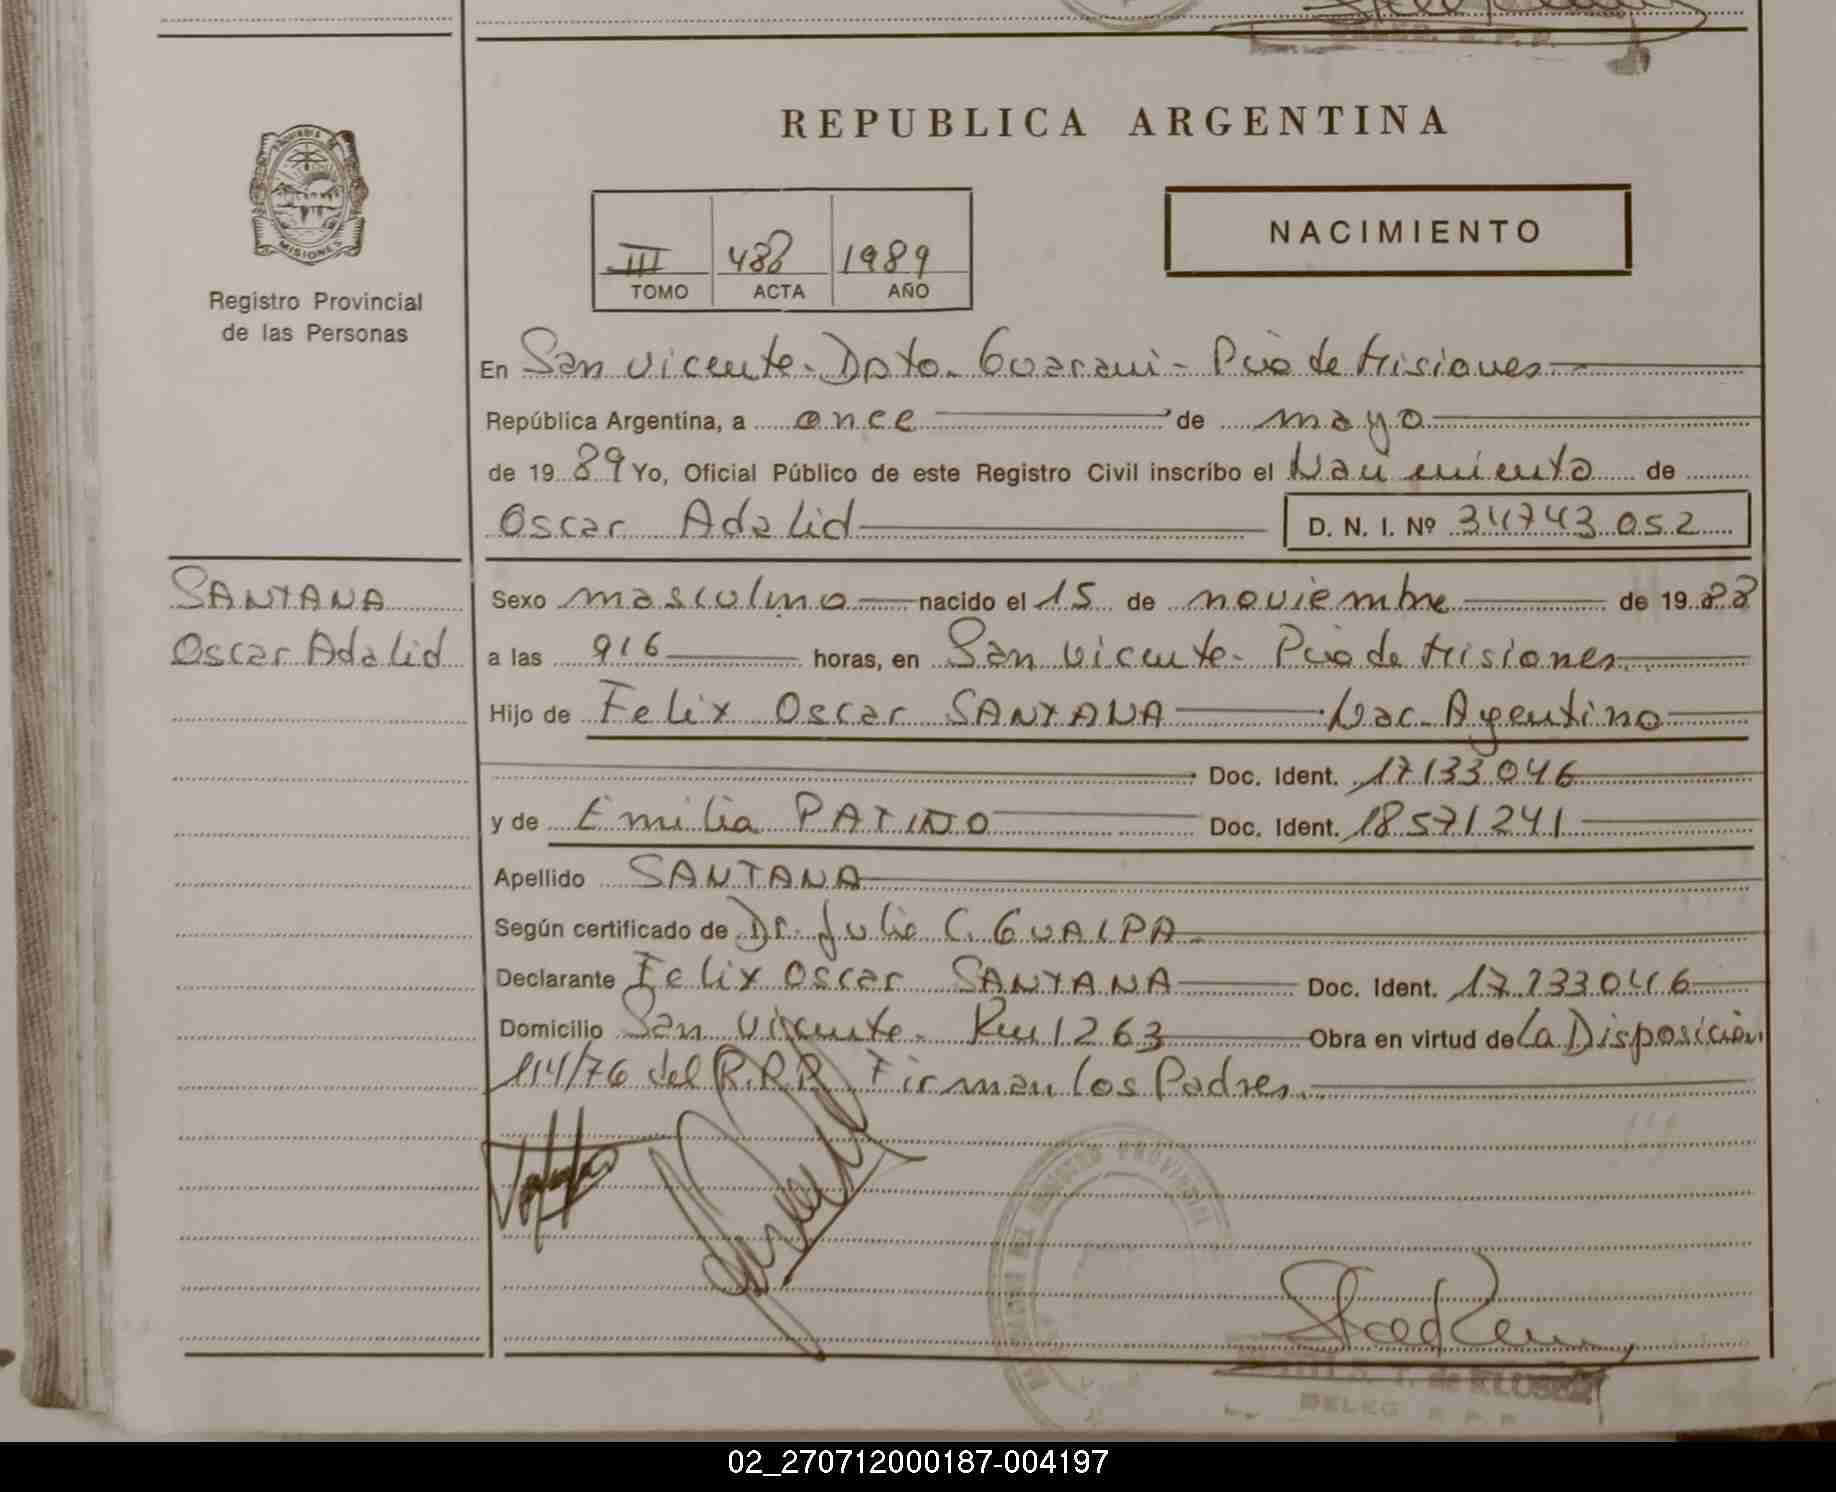 REPUBLICA ARGENTINA
PROVINCIA
MISIONES
Registro Provincial
de las Personas
III 488 1989
TOMO ACTA AÑO
NACIMIENTO
En San Vicente - Dpto. Guarani - Pcia de Misiones
República Argentina, a once de mayo
de 1989 Yo, Oficial Público de este Registro Civil inscribo el Nacimiento de
Oscar Adalid D. N. I. Nº 34743.052
SANTANA
Oscar Adalid
Sexo masculino nacido el 15 de noviembre de 1988
a las 916 horas, en San Vicente - Pcia de Misiones
Hijo de Felix Oscar SANTANA Nac. Argentino
Doc. Ident. 17133046
y de Emilia PATIÑO Doc. Ident. 18571241
Apellido SANTANA
Según certificado de Dr. Julio C. GUALPA
Declarante Felix Oscar SANTANA Doc. Ident. 17.133046
Domicilio San Vicente - Km 1263 Obra en virtud de La Disposición
114/76 del R.P.P. Firman los Padres.
de KLUSE
DELEG R. P. P.
02_270712000187-004197